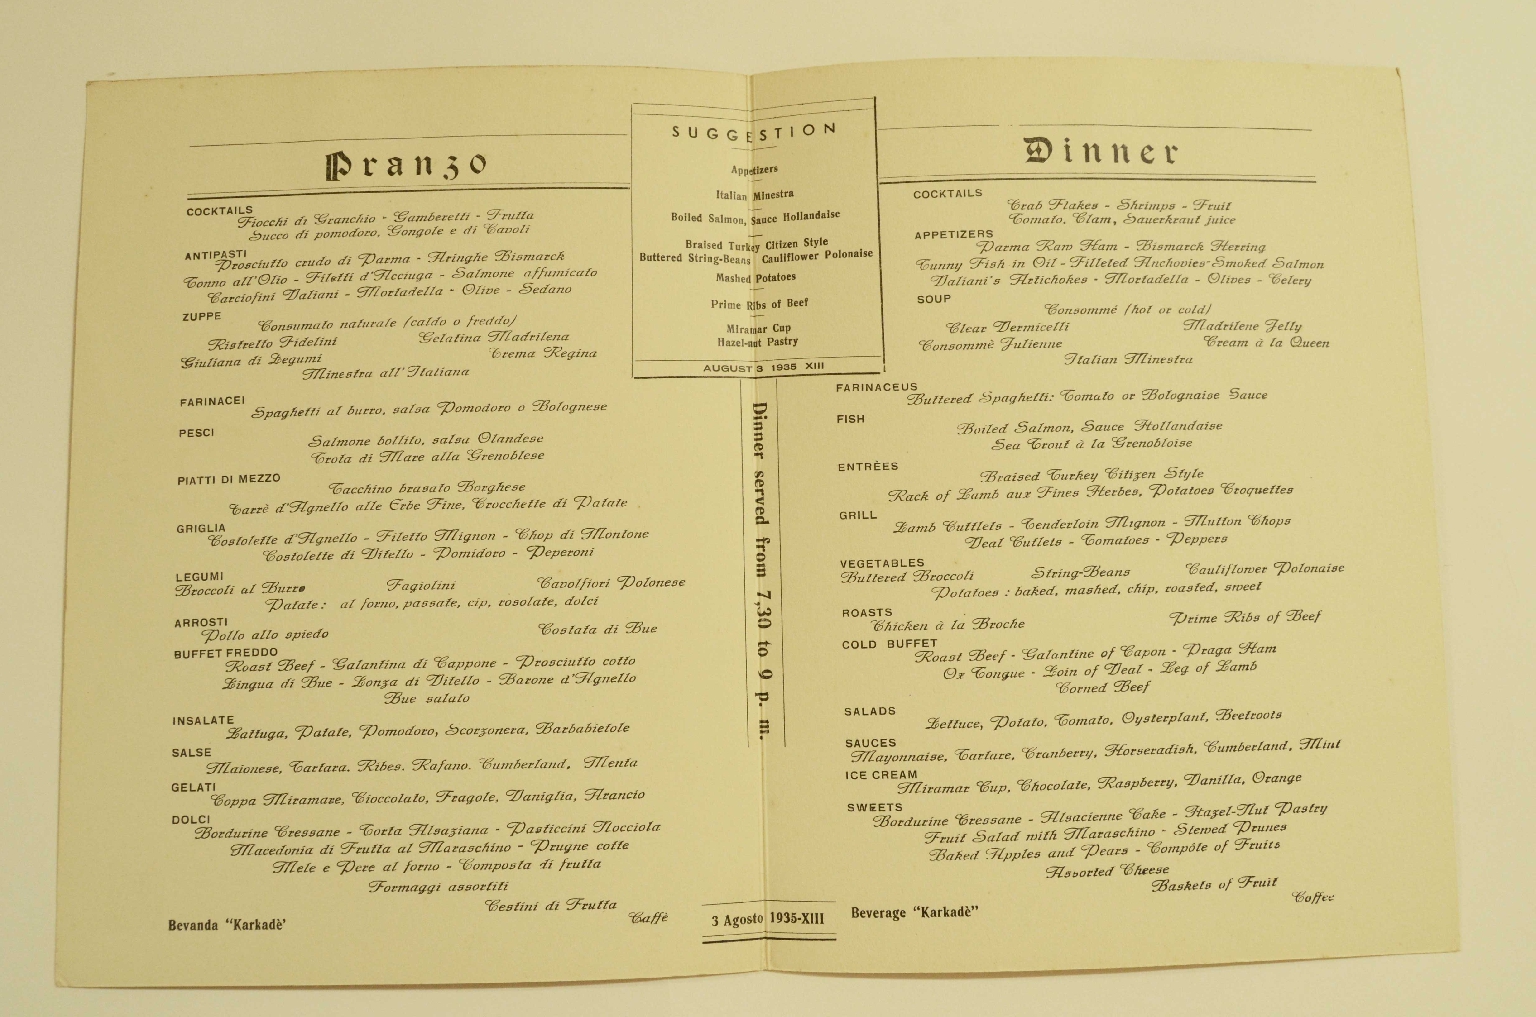 Pranzo
COCKTAILS
Fiocchi di Granchio - Gamberetti - Frutta
Succo di pomodoro, Gongole e di Cavoli
ANTIPASTI
Prosciutto crudo di Parma - Aringhe Bismarck
Tonno all'Olio - Filetti d'Acciuga - Salmone affumicato
Carciofini Valiani - Mortadella - Olive - Sedano
ZUPPE
Consumato naturale (caldo o freddo)
Ristretto Fidelini Gelatina Madrilena
Giuliana di Legumi Crema Regina
Minestra all'Italiana
FARINACEI
Spaghetti al burro, salsa Pomodoro o Bolognese
PESCI
Salmone bollito, salsa Olandese
Trota di Mare alla Grenoblese
PIATTI DI MEZZO
Tacchino brasato Borghese
Carrè d'Agnello alle Erbe Fine, Crocchette di Patate
GRIGLIA
Costolette d'Agnello - Filetto Mignon - Chop di Montone
Costolette di Vitello - Pomidoro - Peperoni
LEGUMI
Broccoli al Burro Fagiolini Cavolfiori Polonese
Patate: al forno, passate, cip, rosolate, dolci
ARROSTI
Pollo allo spiedo Costata di Bue
BUFFET FREDDO
Roast Beef - Galantina di Cappone - Prosciutto cotto
Lingua di Bue - Lonza di Vitello - Barone d'Agnello
Bue salato
INSALATE
Lattuga, Patate, Pomodoro, Scorzonera, Barbabietole
SALSE
Maionese, Tartara. Ribes. Rafano. Cumberland, Menta
GELATI
Coppa Miramare, Cioccolato, Fragole, Vaniglia, Arancio
DOLCI
Bordurine Cressane - Torta Alsaziana - Pasticcini Nocciola
Macedonia di Frutta al Maraschino - Prugne cotte
Mele e Pere al forno - Composta di frutta
Formaggi assortiti
Cestini di Frutta
Caffè
Bevanda "Karkadè'
SUGGESTION
Appetizers
Italian Minestra
Boiled Salmon, Sauce Hollandaise
Braised Turkey Citizen Style
Buttered String-Beans Cauliflower Polonaise
Mashed Potatoes
Prime Ribs of Beef
Miramar Cup
Hazel-nut Pastry
AUGUST 3 1935 XIII
Dinner served from 7,30 to 9 p. m.
3 Agosto 1935-XIII
Dinner
COCKTAILS
Crab Flakes - Shrimps - Fruit
Tomato, Clam, Sauerkraut juice
APPETIZERS
Parma Raw Ham - Bismarck Herring
Tunny Fish in Oil - Filleted Anchovies-Smoked Salmon
Valiani's Artichokes - Mortadella - Olives - Celery
SOUP
Consommé (hot or cold)
Clear Vermicelli Madrilene Jelly
Consommè Julienne Cream à la Queen
Italian Minestra
FARINACEUS
Buttered Spaghetti: Tomato or Bolognaise Sauce
FISH
Boiled Salmon, Sauce Hollandaise
Sea Trout à la Grenobloise
ENTRÈES
Braised Turkey Citizen Style
Rack of Lamb aux Fines Herbes, Potatoes Croquettes
GRILL
Lamb Cuttlets - Tenderloin Mignon - Mutton Chops
Veal Cutlets - Tomatoes - Peppers
VEGETABLES
Buttered Broccoli String-Beans Cauliflower Polonaise
Potatoes : baked, mashed, chip, roasted, sweet
ROASTS
Chicken à la Broche Prime Ribs of Beef
COLD BUFFET
Roast Beef - Galantine of Capon - Praga Ham
Ox Tongue - Loin of Veal - Leg of Lamb
Corned Beef
SALADS
Lettuce, Potato, Tomato, Oysterplant, Beetroots
SAUCES
Mayonnaise, Tartare, Cranberry, Horseradish, Cumberland, Mint
ICE CREAM
Miramar Cup, Chocolate, Raspberry, Vanilla, Orange
SWEETS
Bordurine Cressane - Alsacienne Cake - Hazel-Nut Pastry
Fruit Salad with Maraschino - Stewed Prunes
Baked Apples and Pears - Compôte of Fruits
Assorted Cheese
Baskets of Fruit
Coffee
Beverage "Karkadè"